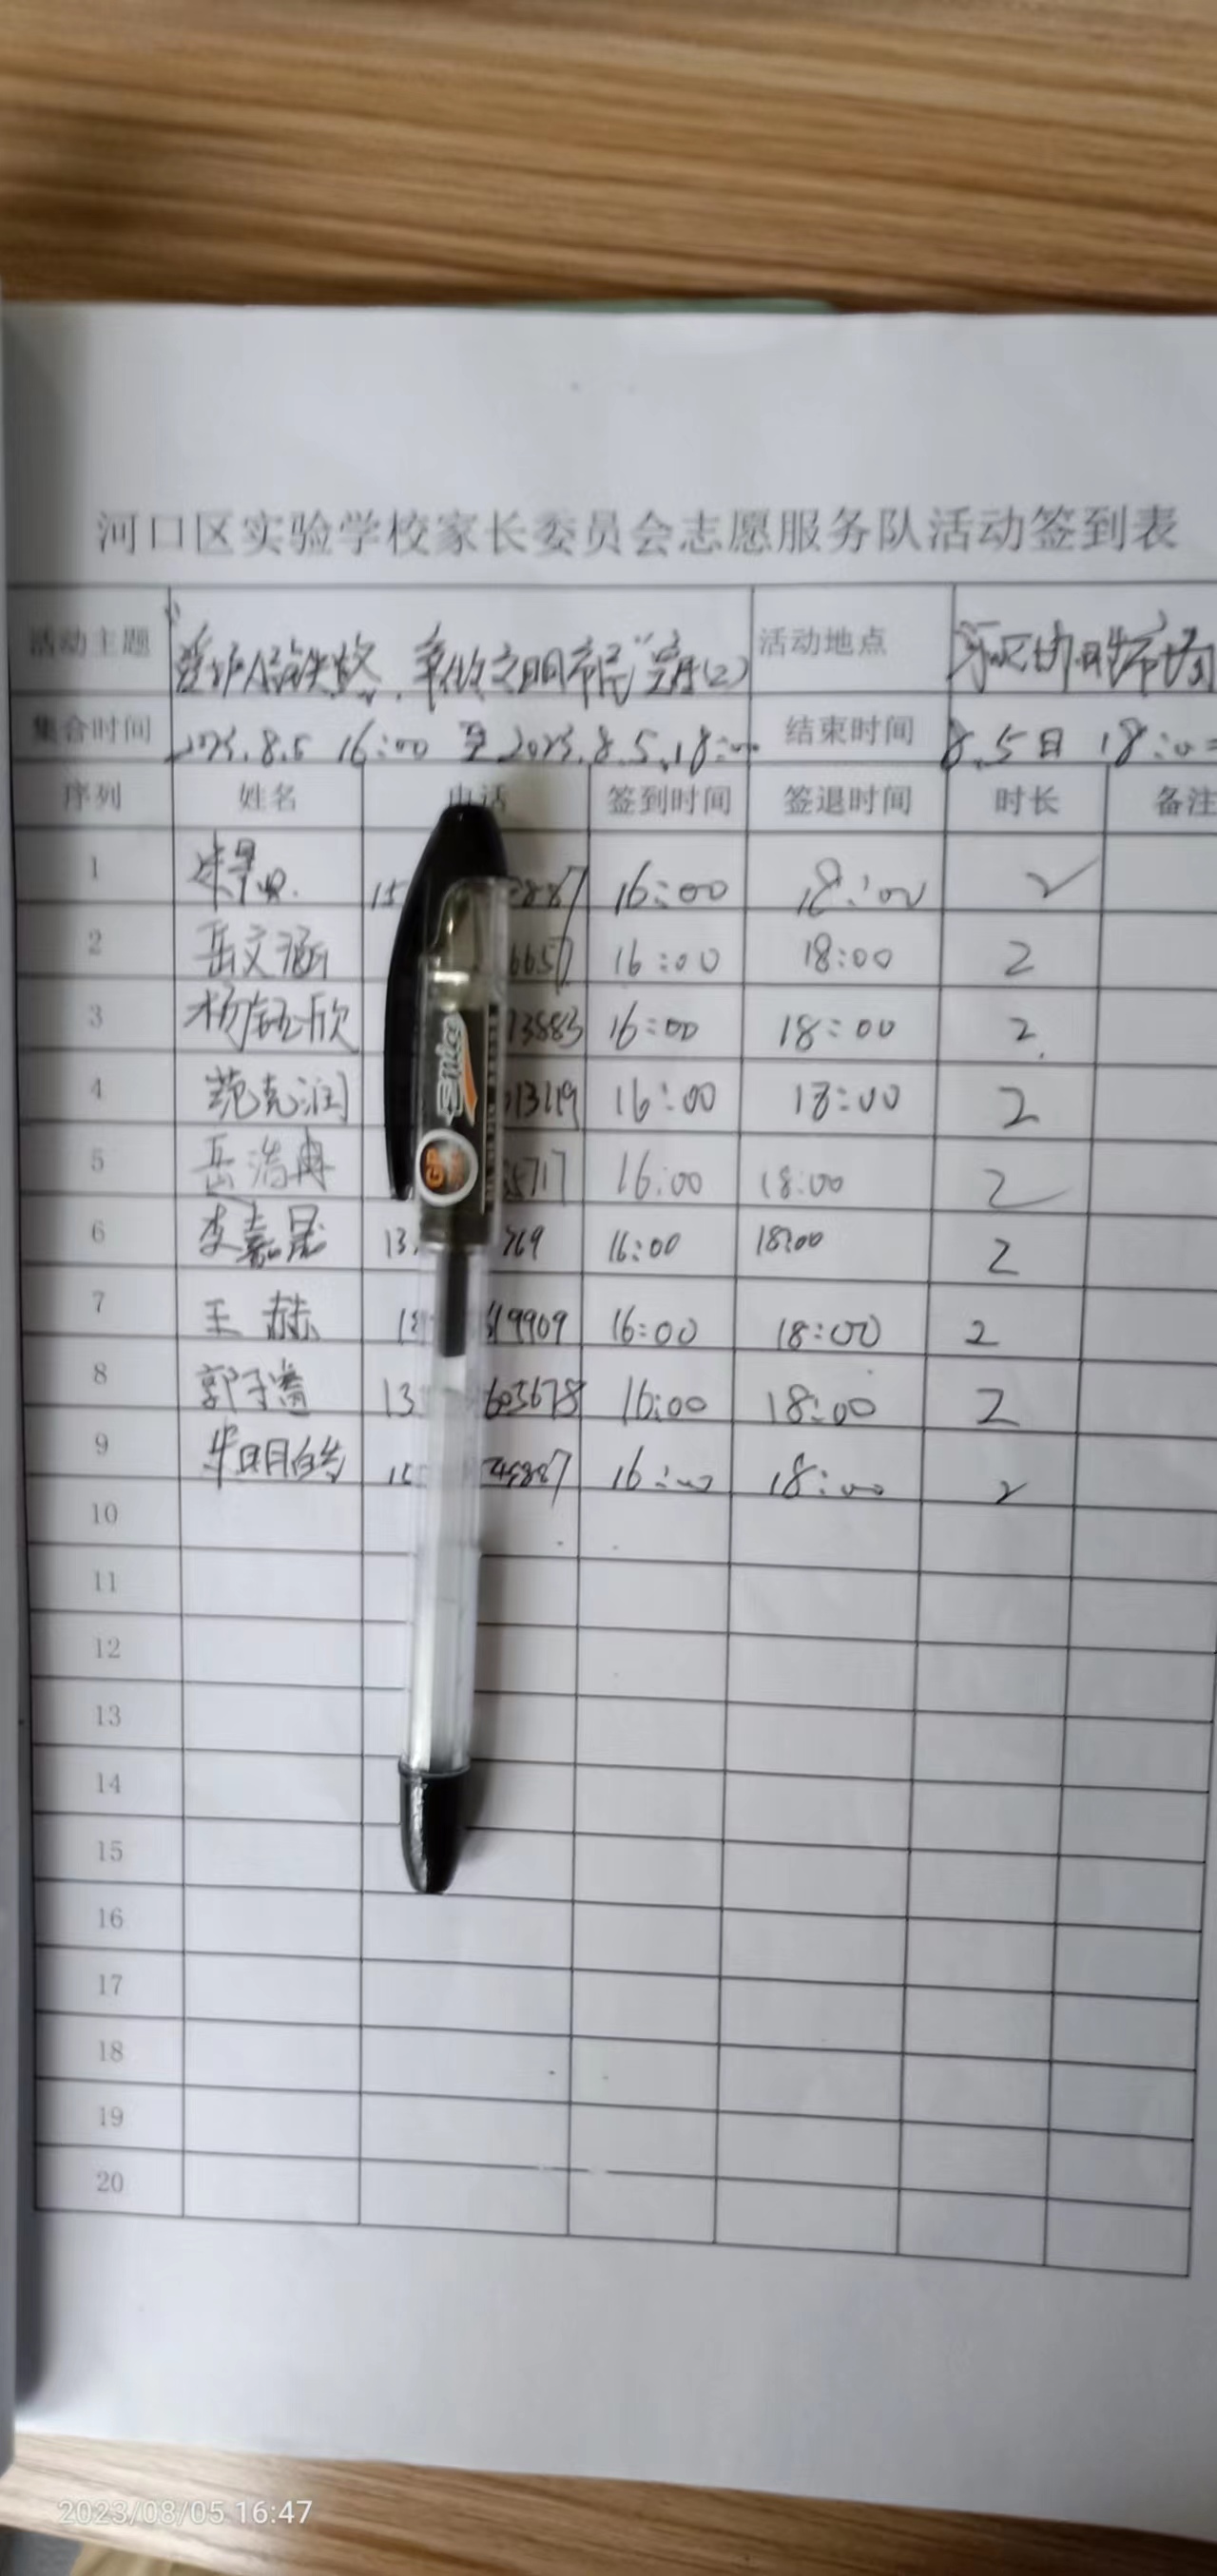 河口区实验学校家长委员会志愿服务队活动签到表
活动主题 活动地点
集合时间 2023.8.5 16:00 至 2023.8.5.18:00 结束时间 8.5日 18:00
序列 姓名 电话 签到时间 签退时间 时长 备注
1 15 887 16:00 18:00 2
2 岳文涵 6657 16:00 18:00 2
3 杨钰欣 13883 16:00 18:00 2
4 范克润 16:00 18:00 2
5 岳浩冉 5717 16:00 18:00 2
6 李嘉晟 13 769 16:00 18:00 2
7 王赫 19909 16:00 18:00 2
8 郭子睿 13 603678 16:00 18:00 2
9 15 4887 16:00 18:00 2
10
11
12
13
14
15
16
17
18
19
20
GP
2023/08/05 16:47